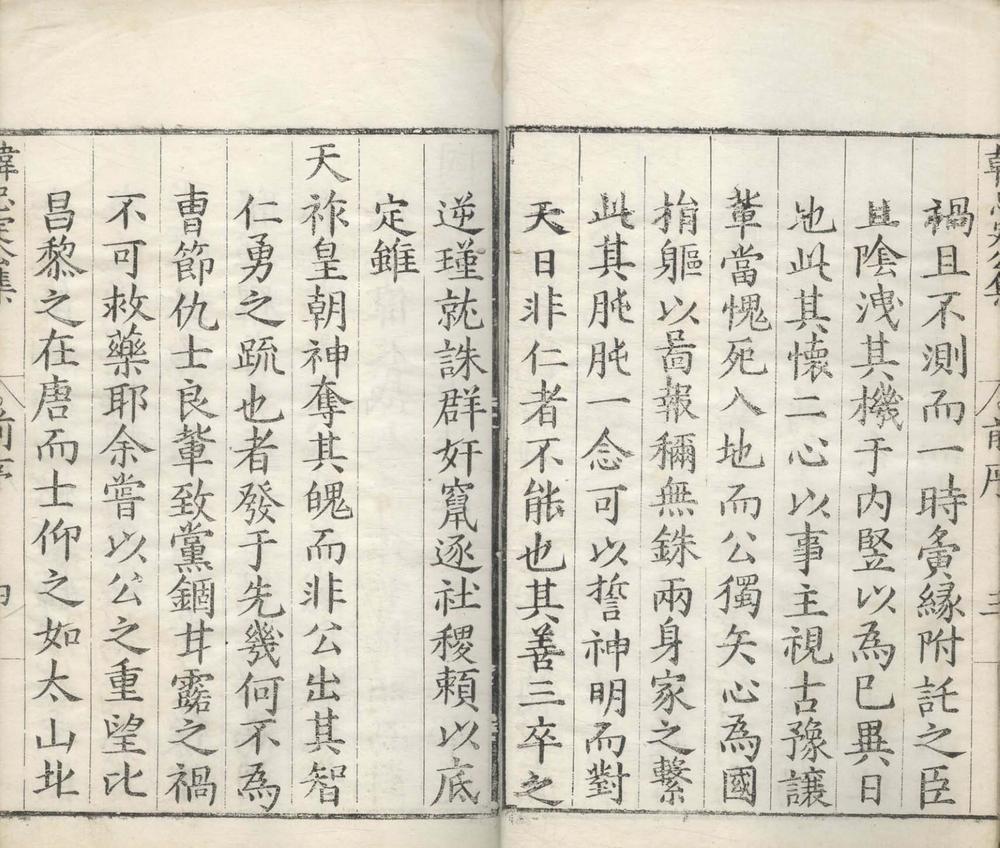 韓忠定公集
前序
三
禍且不測而一時夤縁附託之臣
且陰洩其機于内竪以為已異日
地此其懷二心以事主視古豫讓
輩當愧死入地而公獨矢心為國
捐軀以啚報稱無銖兩身家之繫
此其肫肫一念可以誓神明而對
天日非仁者不能也其善三卒之
逆瑾就誅群奸竄逐社稷頼以底
定雖
天祚皇朝神奪其魄而非公出其智
仁勇之疏也者發于先幾何不為
曹節仇士良輩致黨錮甘露之禍
不可救藥耶余嘗以公之重望比
昌黎之在唐而士仰之如太山北
韓忠定公集
前序
四